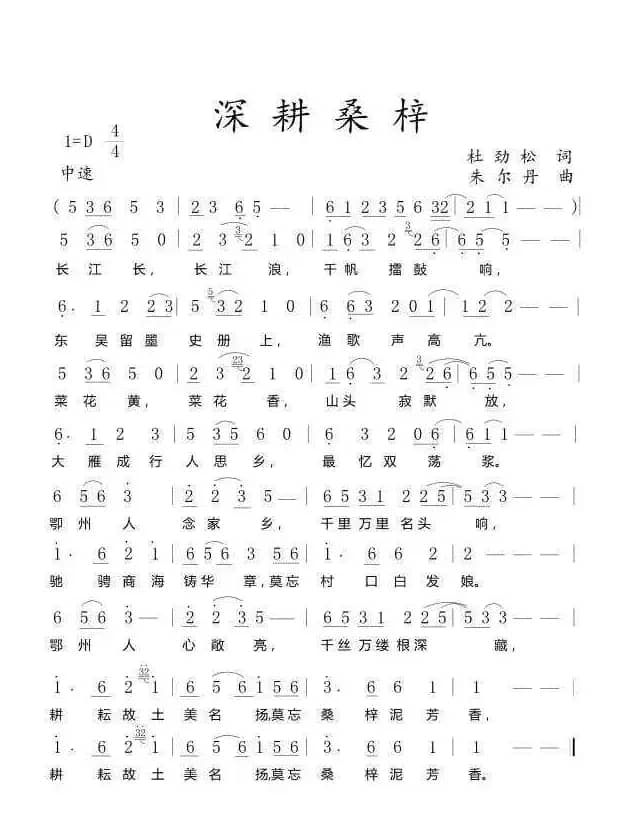 深耕桑梓
1=D 4/4
杜劲松 词
中速
朱尔丹 曲
( 5 3 6 5 3 | 2 3 6 5 — — | 6 1 2 3 5 6 32 | 2 1 1 — — )|
5 3 6 5 0 | 2 3 3 2 1 0 | 1 6 3 2 2 6 | 6 5 5 — — |
长江长，长江浪，千帆擂鼓响，
6· 1 2 2 3 | 5 5 3 2 1 0 | 6 6 3 2 0 1 | 1 2 2 — — |
东吴留墨史册上，渔歌声高亢。
5 3 6 5 0 | 2 3 23 2 1 0 | 1 6 3 2 3 2 6 | 6 5 5 — — |
菜花黄，菜花香，山头寂默放，
6· 1 2 3 | 5 3 5 6 0 | 1 6 3 2 0 6 | 6 1 1 — — |
大雁成行人思乡，最忆双荡浆。
6 5 6 3 | 2 2 3 5 | 6 5 3 1 2 2 5 | 5 3 3 — — |
鄂州人念家乡，千里万里名头响，
1· 6 2 1 | 2 6 5 6 3 5 | 3· 6 6 2 | 1 — — — |
驰骋商海铸华章，莫忘村口白发娘。
5 6 3 — | 2 2 3 5 | 6 5 3 1 2 2 5 | 5 3 3 — — |
鄂州人心敞亮，千丝万缕根深藏，
1· 6 2 32 1 | 2 6 5 6 1 5 6 | 3· 6 6 1 | 1 — — — |
耕耘故土美名扬，莫忘桑梓泥芳香，
1· 6 2 32 1 | 2 6 5 6 1 5 6 | 3· 6 6 1 | 1 — — — ‖
耕耘故土美名扬，莫忘桑梓泥芳香。